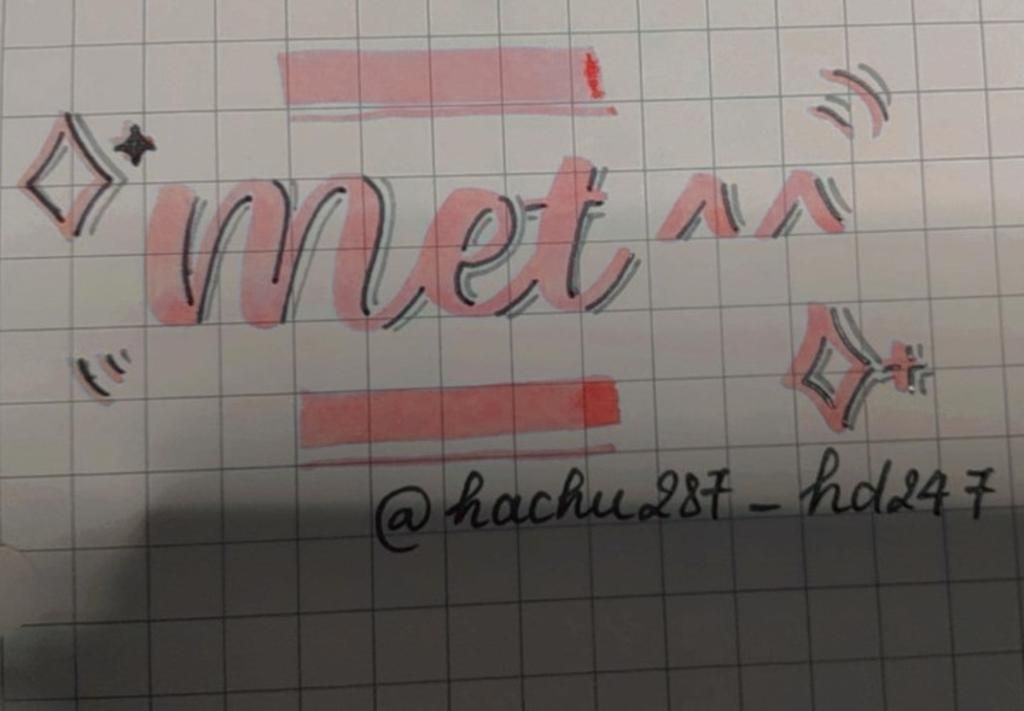 met ^^
@hachu287_hd247